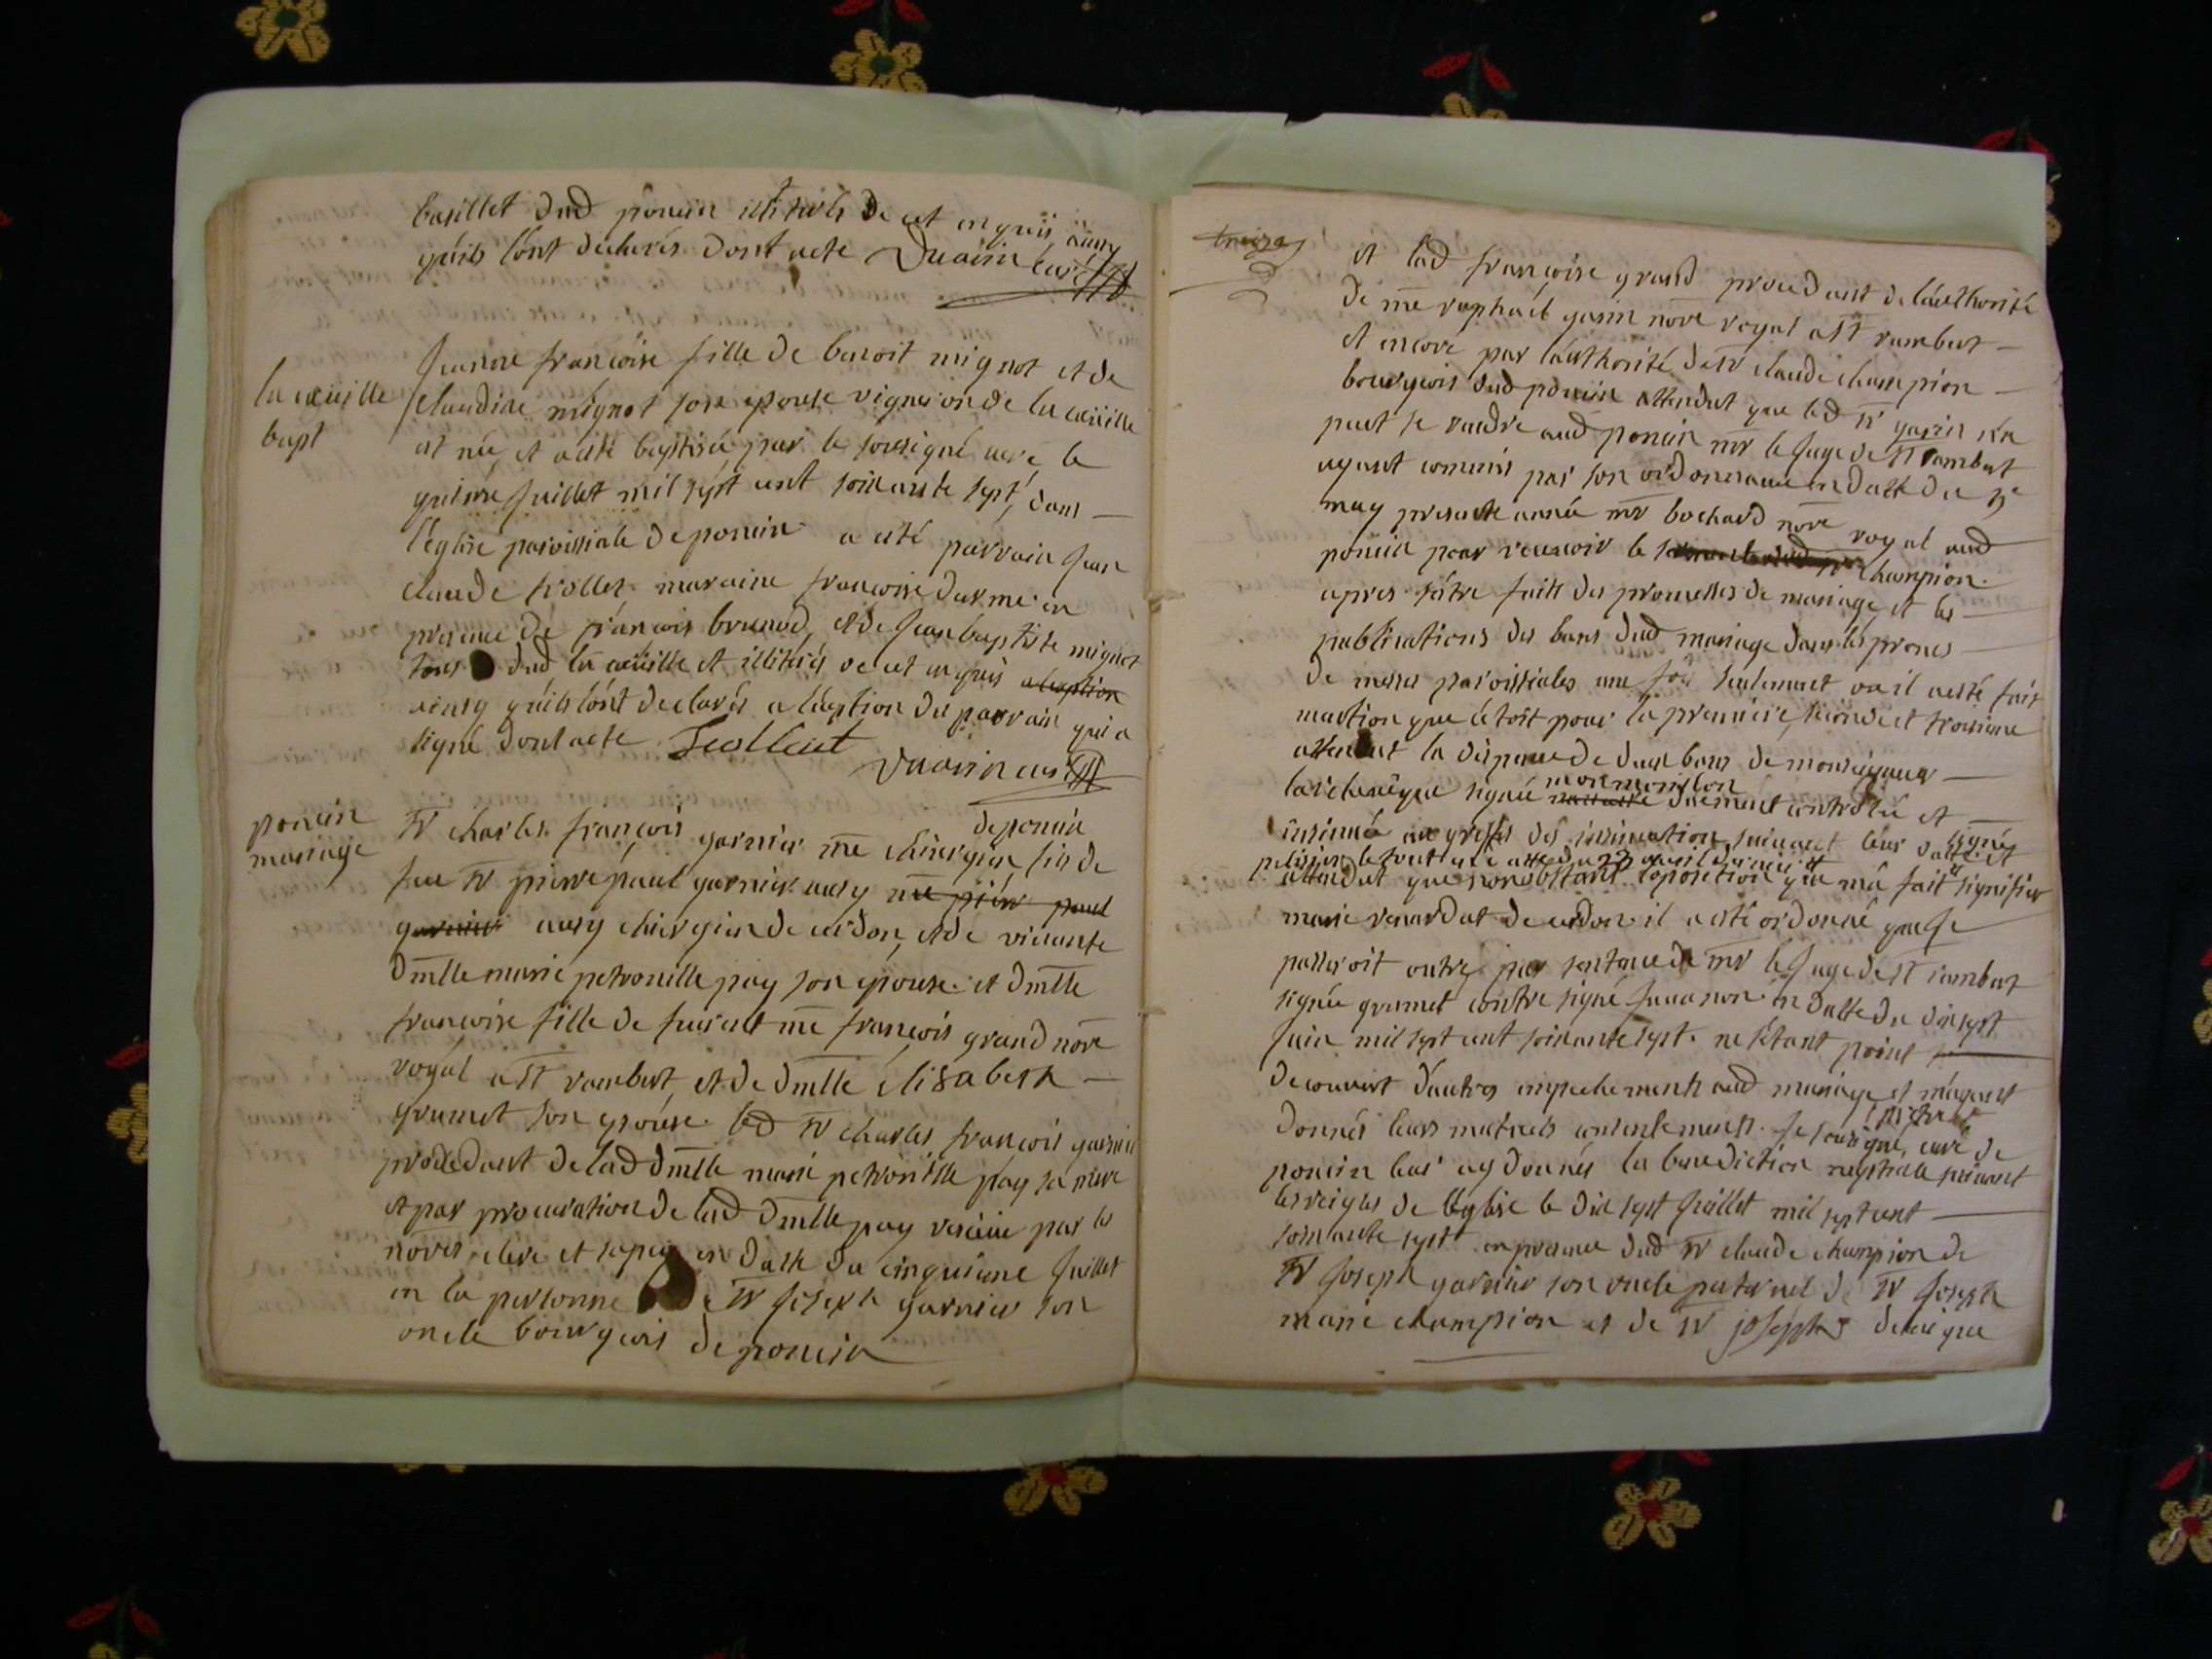 dud poncin illiterés de cet enquis ainsy
qu'ils l'ont declarés dont acte curé
la cueille
bapt
Jeanne françoise fille de benoit mignot et de
claudine mignot son epouse vigneron de la cueille
est née, et a esté baptisée par le soussigné curé, le
quinze juillet mil sept cent soixante sept, dans
l'eglise paroissiale de poncin a esté parrain jean
claude maraine françoise en
presence de françois brunod, et de jean baptiste mignot
tous dud la cueille et illiterés de cet enquis
ainsy qu'ils l'ont declarés a l'exeption du parrain qui a
signé dont acte
curé
poncin
mariage
Sr charles françois garnier me chirurgien de poncin fils de
feu Sr pierre paul garnier aussy me pierre paul
garnier aussy chirurgien de cerdon, et de vivante
dmlle marie petronille pay son epouse. et dmlle
françoise fille de me françois grand nore
royal a St rambert, et de dmlle élisabeth
grumet son epouse. led Sr charles françois garnier
procedant de lad dmlle marie petronille pay sa mere
et par procuration de lad dmlle pay par les
nores et en datte du cinquieme juillet
en la personne de Sr joseph garnier son
oncle bourgeois de poncin
et lad françoise grand procedant de l'authorité
de me raphaël nore royal a St rambert
et encore par l'authorité de Sr claude champion
bourgeois dud poncin attendut que led Sr n'a
peut se rendre aud poncin mr le juge de St rambert
ayant commis par son ordonnance en datte du
may presente année mr bochard nore royal aud
poncin pour recevoir le champion.
apres s'être faits des promesses de mariage, et les
publications des bans dud mariage dans les prones
de messes paroissiales une fois seulement ou il a esté fait
mention que c'etoit pour la premiere, seconde et troisieme
attendut la dispense de deux bans de monseigneur
l'archeveque signée duement controlée et
insinuée au greffe des insinuation suivant leur datte et signés
attendut que nonobstant l'oposition que m'a fait signifier
marie de cerdon il a esté ordonné que je
passeroit outre par sentence de mr le juge de St rambert
signée grumet contre signé en datte du dix sept
juin mil sept cent soixante sept. ne s'etant point
decouvert d'autres empechements aud mariage et m'ayant
donnés leurs mutuels consentements. je soussigné, curé de
poncin leur ay donnés la benediction nuptiale suivant
les reigles de l'eglise le dix sept juillet mil sept cent
soixante sept en presence dud Sr claude champion de
Sr joseph garnier son oncle paternel de Sr joseph
marie champion et de Sr joseph